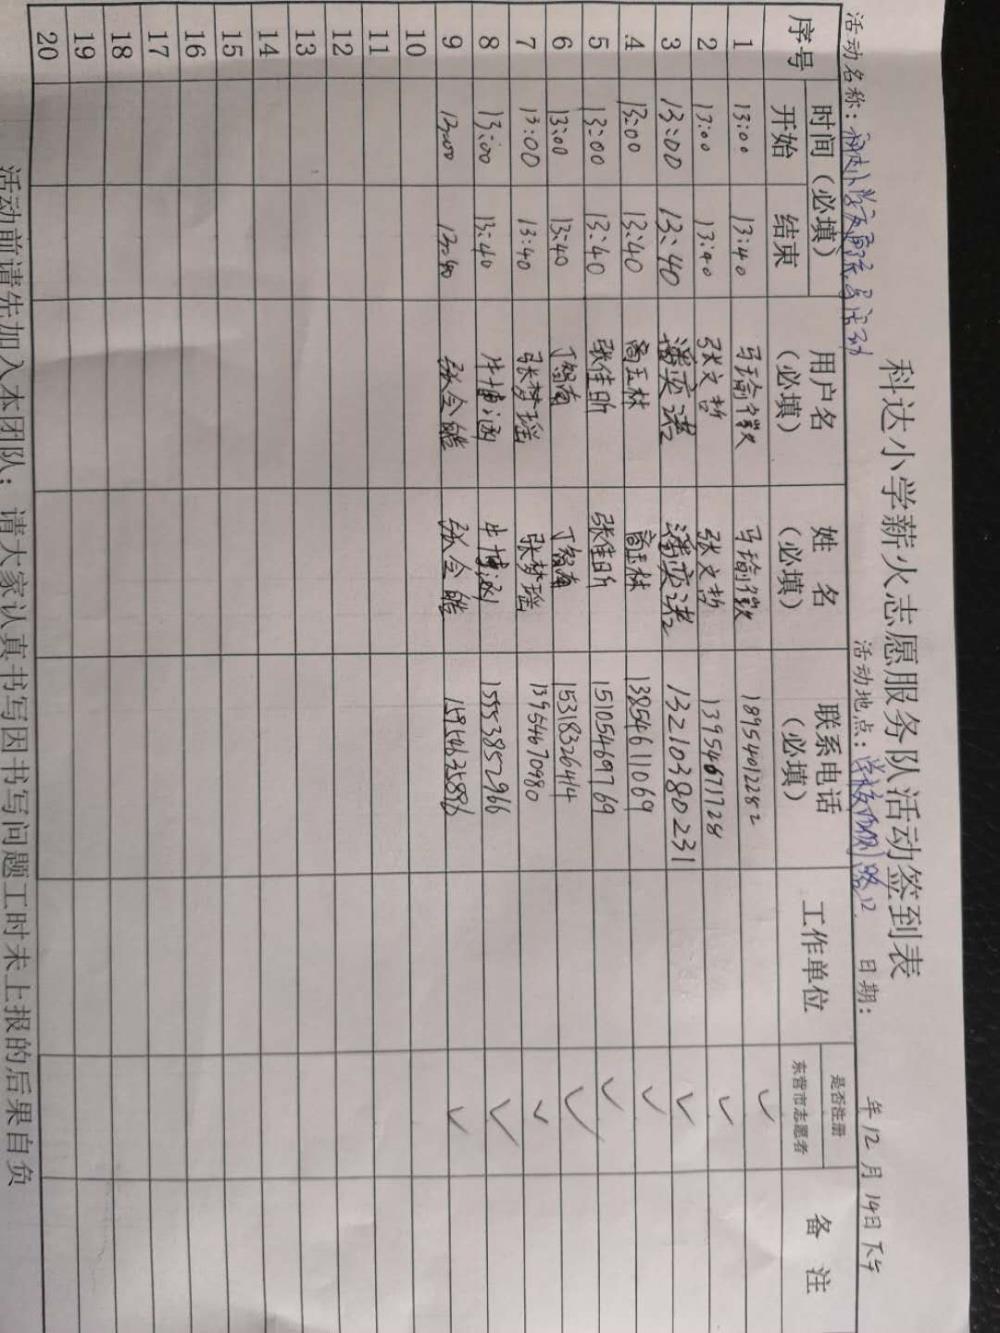 科达小学薪火志愿服务队活动签到表
活动名称： 活动地点：学校 日期： 年12月14日下午
序号 时间（必填） 用户名（必填） 姓名（必填） 联系电话（必填） 工作单位 是否注册东营市志愿者 备注
开始 结束
1 13:00 13:40 马瑜徽 马瑜徽 18954012282
2 13:00 13:40 张文哲 张文哲 13954671728
3 13:00 13:40 潘奕诺 潘奕诺 13210380231
4 13:00 13:40 高玉林 高玉林 13854611069
5 13:00 13:40 张佳昕 张佳昕 15105469769
6 13:00 13:40 丁智有 丁智有 15318326414
7 13:00 13:40 张梦瑶 张梦瑶 13954670980
8 13:00 13:40 牛博涵 牛博涵 15553852966
9 13:00 13:40 张今皓 张今皓
10
11
12
13
14
15
16
17
18
19
20
活动前请先加入本团队； 请大家认真书写因书写问题工时未上报的后果自负